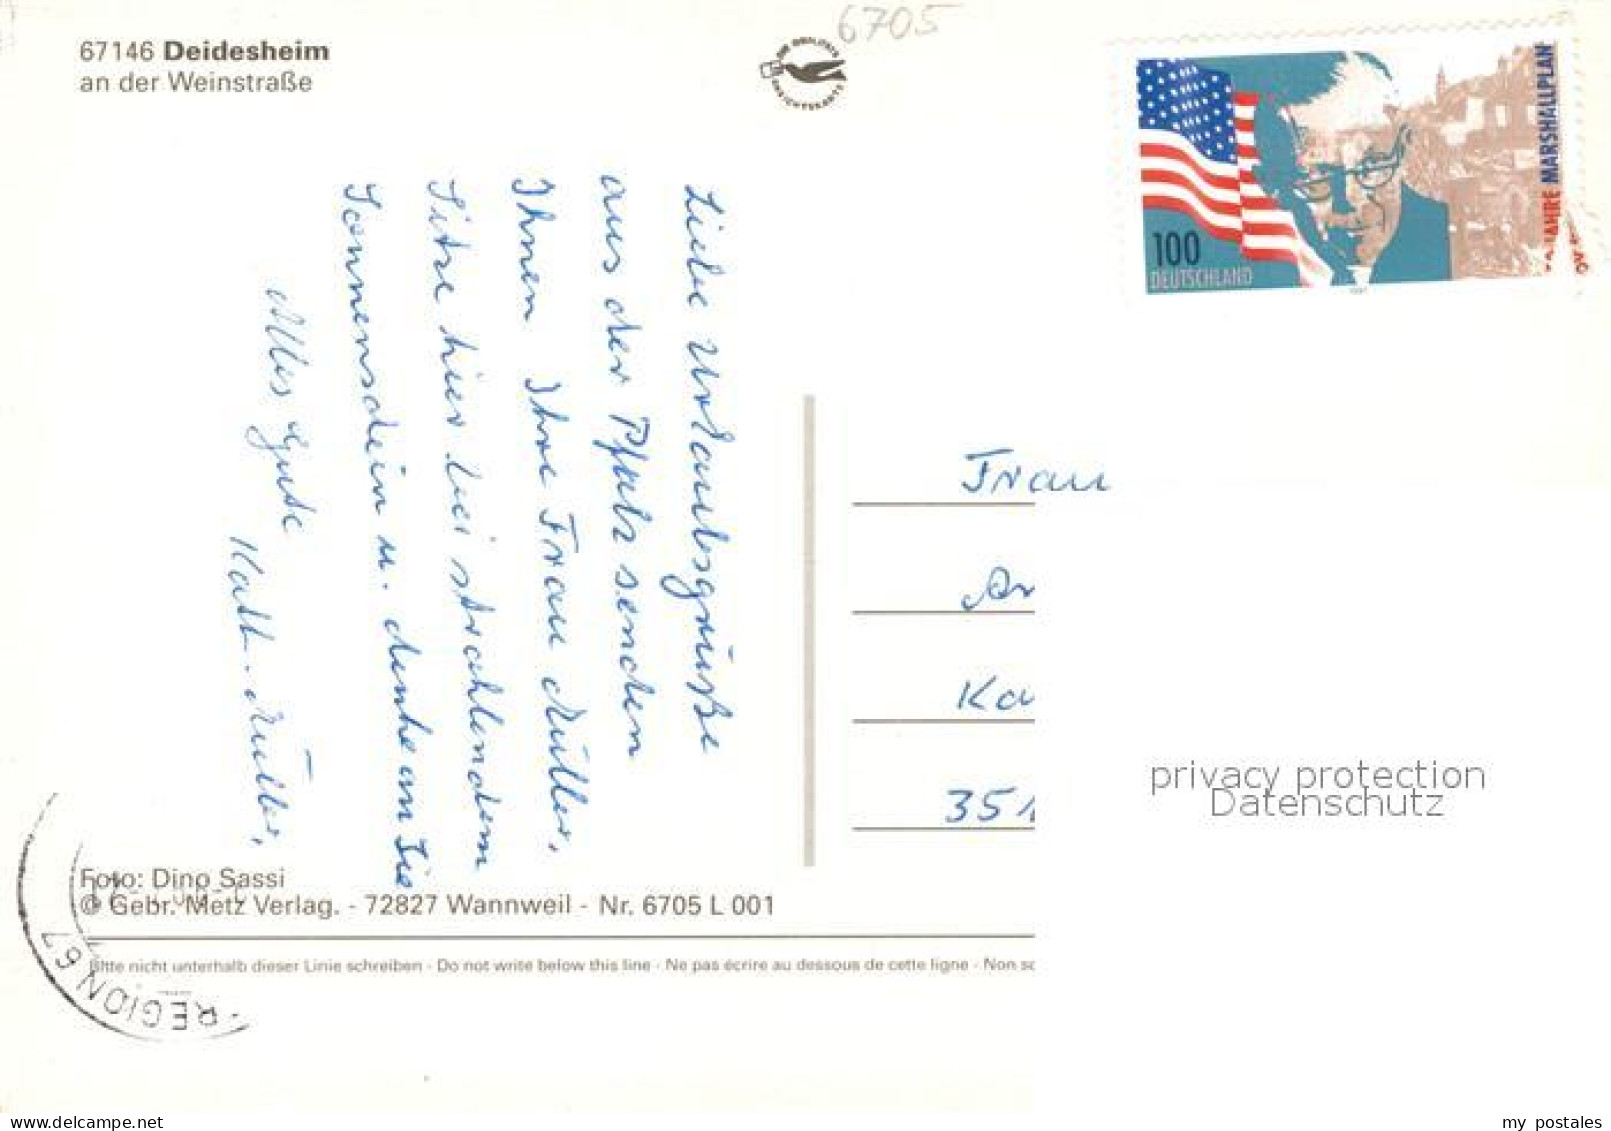 6705
67146 Deidesheim
an der Weinstraße
DIE GEOLOGTE
ANSICHTSKARTE
100
DEUTSCHLAND
JAHRE MARSHALLPLAN
1997
Liebe Urlaubsgrüße
aus der Pfalz senden
Ihnen Ihre Frau Müller,
Sitze hier bei strahlendem
Sonnenschein u. denke an Sie
Alles Gute
Kath. Müller,
Frau
Ka
351
privacy protection
Datenschutz
Foto: Dino Sassi
© Gebr. Metz Verlag. - 72827 Wannweil - Nr. 6705 L 001
Bitte nicht unterhalb dieser Linie schreiben - Do not write below this line - Ne pas écrire au dessous de cette ligne - Non sc
REGION 67
my postales